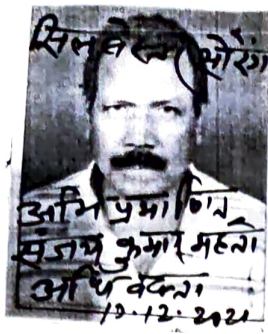 सिलबेस्तर सोरेंग
अभि प्रमाणित
संजय कुमार महतो
अधिवक्ता
10.12.2021